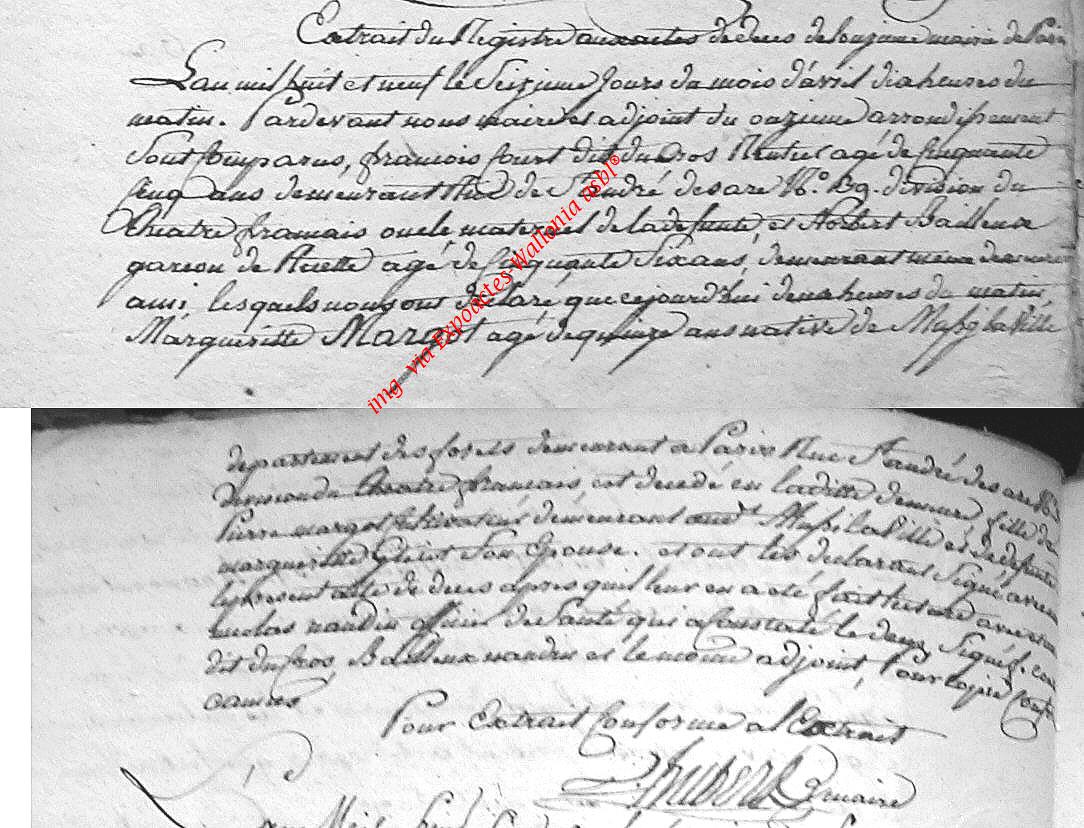 Extrait du Registre aux actes de deces de lonzieme mairie de Paris
Lan mil huit et neuf le Seizieme Jours du mois d'avril dix heures du
matin. Pardevant nous maire et adjoint du onzieme arrondissement
Sont Comparus, francois Court dit du Cros Rentier agé de Cinquante
Cinq ans demeurant Rue de St andré des arc No. 89. division du
theatre francais oncle maternel de la defunte, et Norbert Bailleux
garcon de Recette agé de Cinquante Six ans, demeurant meme demeure
aussi, lesquels nous ont declaré, que cejourd'hui deux heures du matin,
Margueritte Margot agé de quinze ans native de Mussy la Ville
img via Expoactes-Wallonia asbl®
departement des forets demeurant a Paris Rue St andré des arc No
Division du theatre francais est decedé en laditte demeure, fille de
Pierre margot Cultivateur demeurant audt Mussi la Ville et de defunte
margueritte son Epouse. et ont les declarant Signé avec
le present acte de deces apres quil leur en a eté fait lecture avec
nicolas naudin officier de Santé qui a Constaté le deces Signés.
dit du Cros, Bailleux naudin et le moine adjoint, Pour copie Conf
camus
Pour Extrait Conforme a l'Extrait
maire